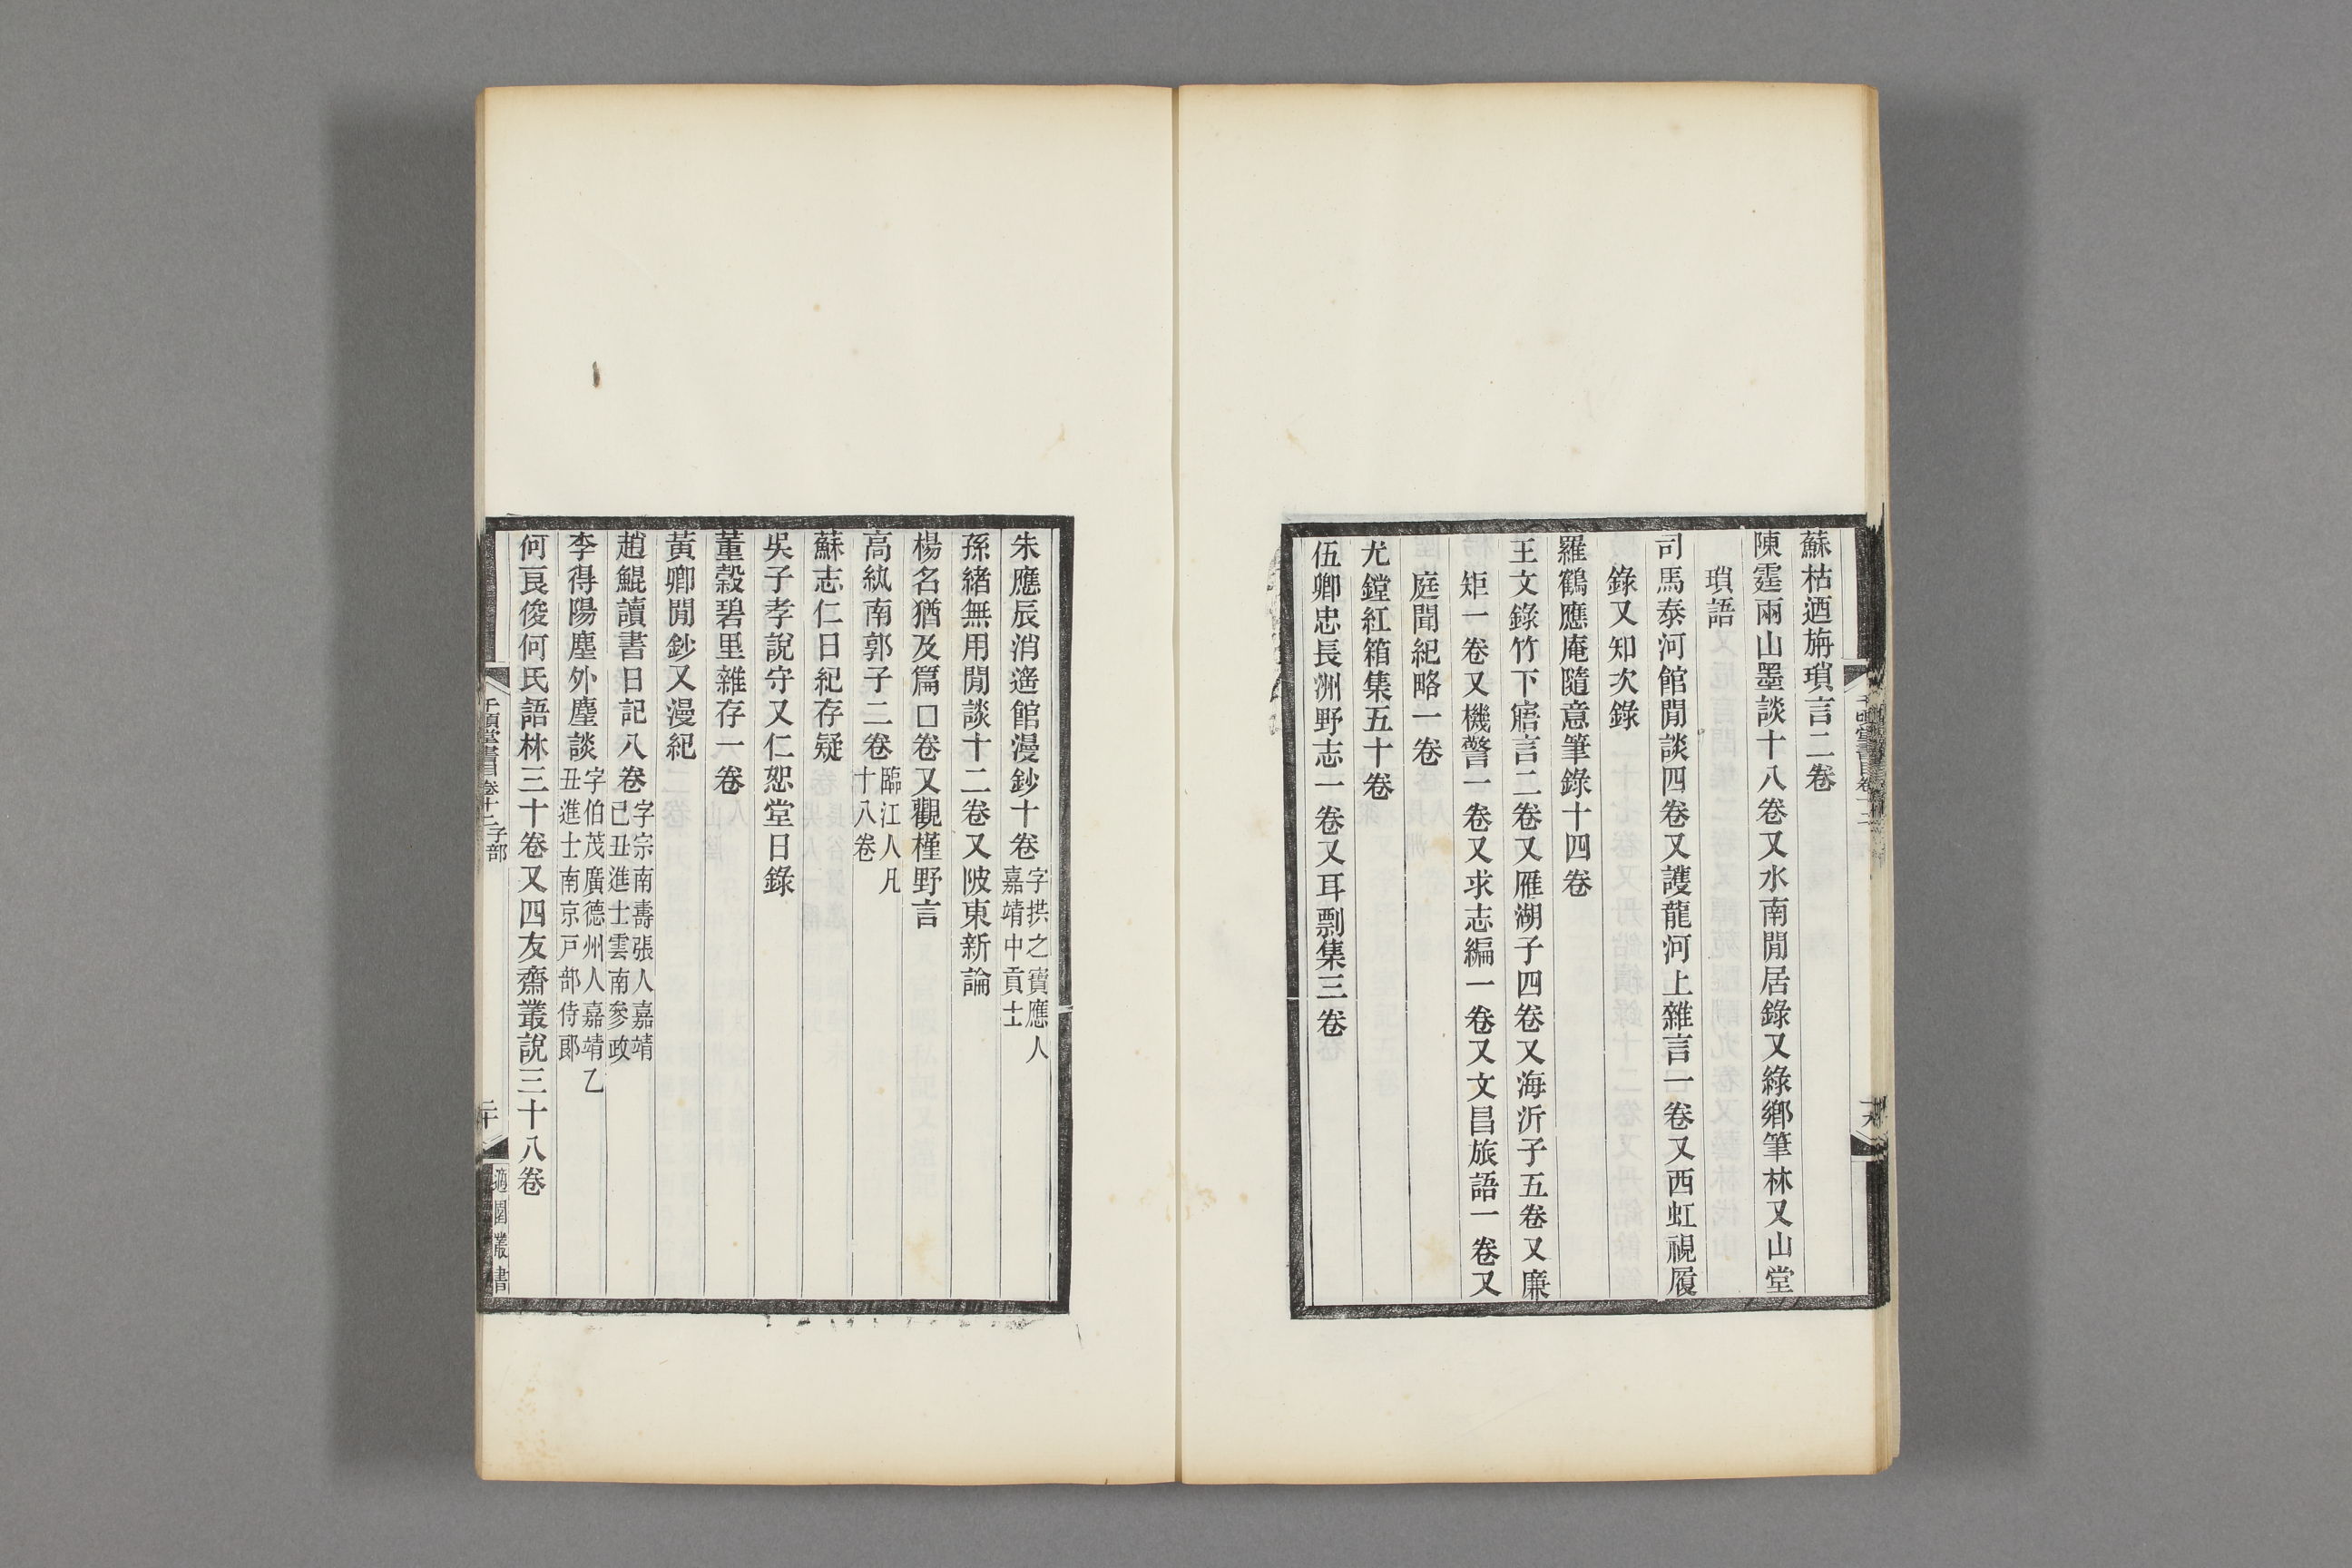 蘇枯迺旃瑣言二卷
陳霆兩山墨談十八卷又水南閒居錄又綠鄉筆林又山堂
瑣語
司馬泰河館閒談四卷又護龍河上雜言一卷又西虹視履
錄又知次錄
羅鶴應庵隨意筆錄十四卷
王文錄竹下寤言二卷又雁湖子四卷又海沂子五卷又廉
矩一卷又機警一卷又求志編一卷又文昌旅語一卷又
庭聞紀略一卷
尤鏜紅箱集五十卷
伍卿忠長洲野志一卷又耳剽集三卷
朱應辰消遙館漫鈔十卷字拱之寶應人
嘉靖中貢士
孫緒無用閒談十二卷又陂東新論
楊名猶及篇口卷又觀槿野言
高紈南郭子二卷臨江人凡
十八卷
蘇志仁日紀存疑
吳子孝說守又仁恕堂日錄
董穀碧里雜存一卷
黃卿閒鈔又漫紀
趙鯤讀書日記八卷字宗南壽張人嘉靖
己丑進士雲南參政
李得陽塵外塵談字伯茂廣德州人嘉靖乙
丑進士南京戸部侍郎
何良俊何氏語林三十卷又四友齋叢說三十八卷
千頃堂書目卷十二子部
二十
適園叢書